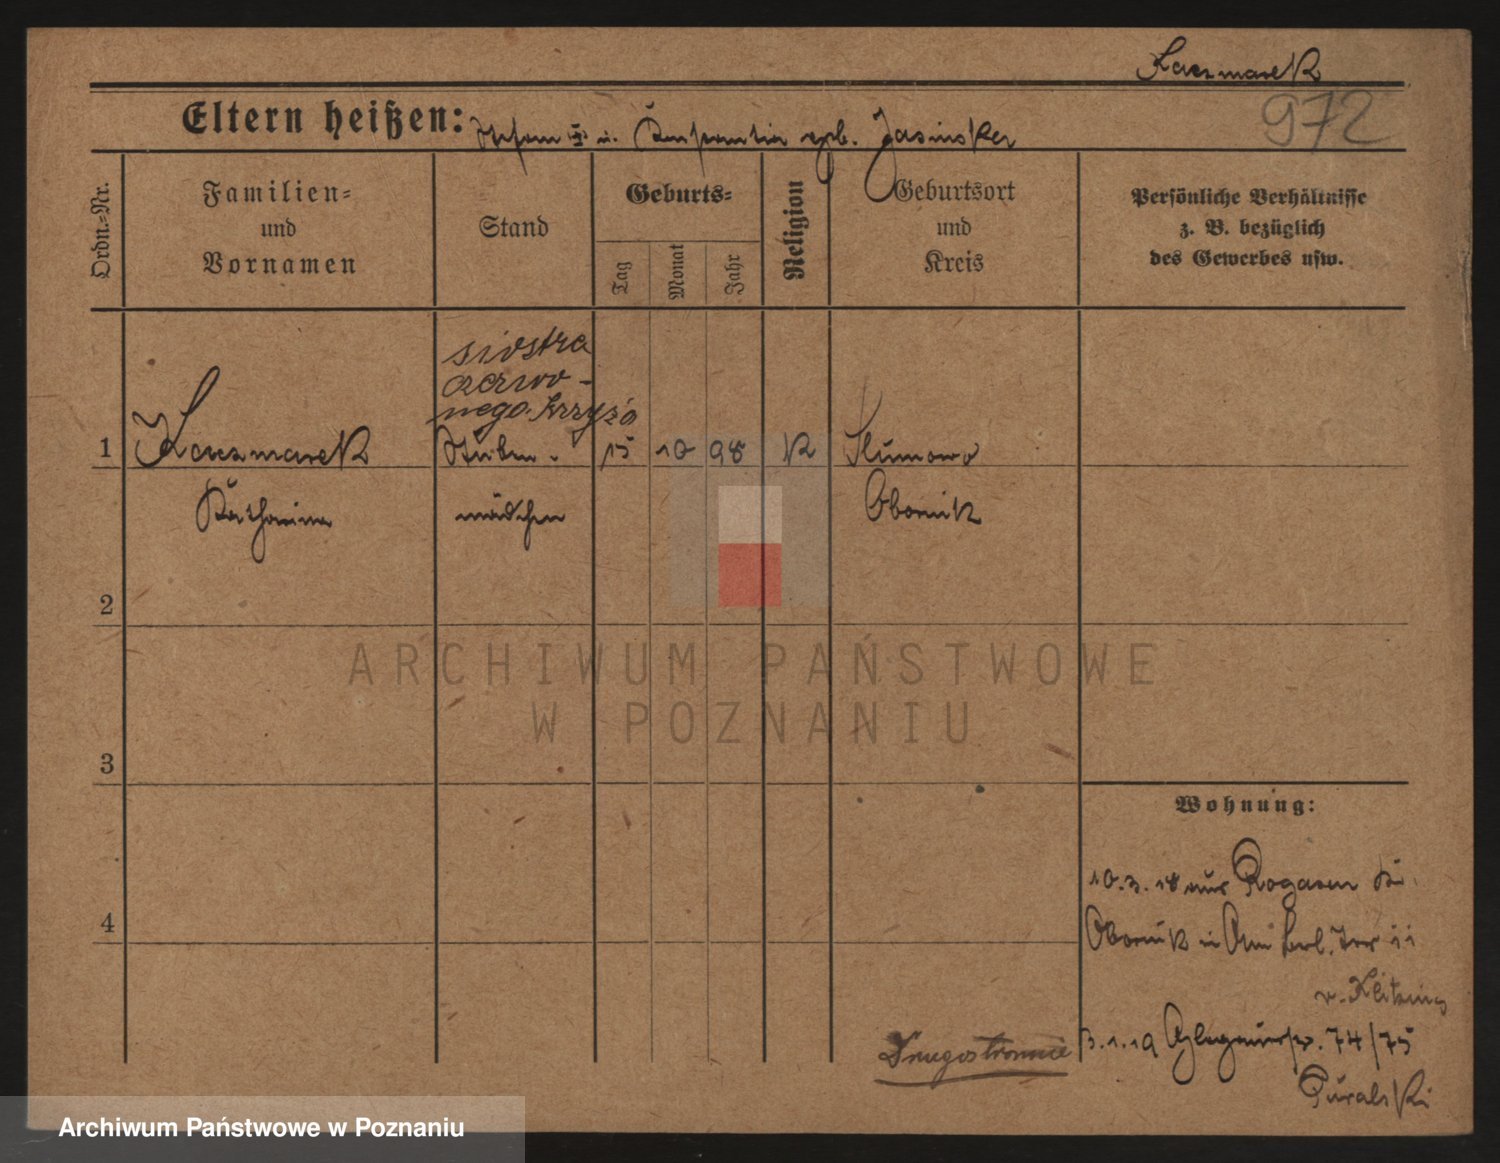 Kaczmarek
972
Eltern heißen: Stefan u. Konstantia geb. Jasinska
Ordn.-Nr.
Familien-
und
Vornamen
Stand
Geburts-
Tag
Monat
Jahr
Religion
Geburtsort
und
Kreis
Persönliche Verhältnisse
z. B. bezüglich
des Gewerbes usw.
siostra
czerwo-
nego Krzyża
1 Kaczmarek Stuben- 15 10 98 K Slumowo
Katharina mädchen Obornik
2
ARCHIWUM PAŃSTWOWE
W POZNANIU
3
Wohnung:
10.3.18 aus Rogasen Kr.
4
Obornik
v. Klitzing
3.1.19 74/75
Drugostronnie
Puralski
Archiwum Państwowe w Poznaniu